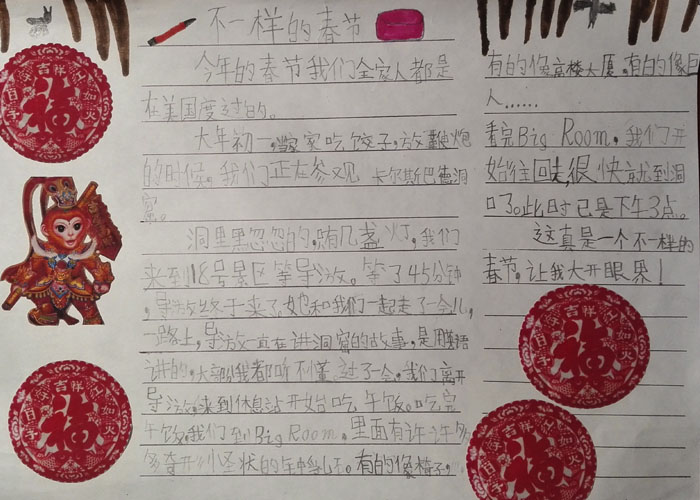 不一样的春节
今年的春节我们全家人都是
在美国度过的。
大年初一,当家家吃饺子,放鞭炮
的时候,我们正在参观 卡尔斯巴德洞
窟。
洞里黑忽忽的,有几盏灯,我们
来到18号景区等导游。等了45分钟
,导游终于来了,她和我们一起走了一会儿,
一路上,导游一直在讲洞窟的故事,是用英语
讲的,大部分我都听不懂。过了一会,我们离开
导游,来到休息站开始吃午饭。吃完
午饭,我们到Big Room,里面有许许多
多奇形怪状的钟乳石。有的像椅子,
有的像高楼大厦,有的像巨
人……
看完Big Room,我们开
始往回走,很快就到洞
口了。此时已是下午3点。
这真是一个不一样的
春节,让我大开眼界!
福
吉祥
如
福
吉祥
如
福
吉祥
如
福
吉祥
如